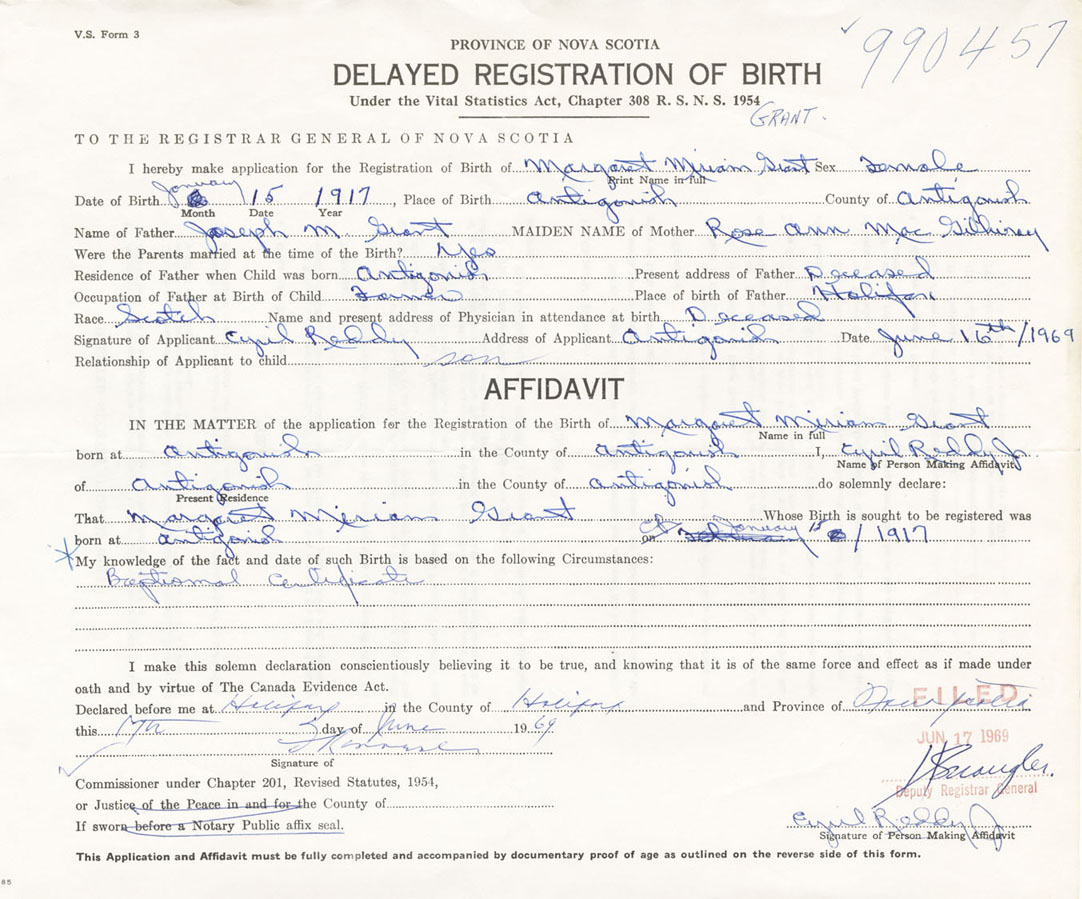 V.S. Form 3
990457
PROVINCE OF NOVA SCOTIA
DELAYED REGISTRATION OF BIRTH
Under the Vital Statistics Act, Chapter 308 R. S. N. S. 1954
GRANT.
TO THE REGISTRAR GENERAL OF NOVA SCOTIA
I hereby make application for the Registration of Birth of Margaret Miriam Grant Sex Female
Print Name in full
Date of Birth January 15 1917, Place of Birth Antigonish County of Antigonish
Month Date Year
Name of Father Joseph M. Grant MAIDEN NAME of Mother Rose Ann Mac Gillivray
Were the Parents married at the time of the Birth? Yes
Residence of Father when Child was born Antigonish Present address of Father Deceased
Occupation of Father at Birth of Child Farmer Place of birth of Father Halifax
Race Scotch Name and present address of Physician in attendance at birth Deceased
Signature of Applicant Cyril Reddy Address of Applicant Antigonish Date June 16th/1969
Relationship of Applicant to child son
AFFIDAVIT
IN THE MATTER of the application for the Registration of the Birth of Margaret Miriam Grant
Name in full
born at Antigonish in the County of Antigonish I, Cyril Reddy Jr.
Name of Person Making Affidavit
of Antigonish in the County of Antigonish do solemnly declare:
Present Residence
That Margaret Miriam Grant Whose Birth is sought to be registered was
born at Antigonish on January 15 /1917
My knowledge of the fact and date of such Birth is based on the following Circumstances:
Baptismal Certificate
I make this solemn declaration conscientiously believing it to be true, and knowing that it is of the same force and effect as if made under
oath and by virtue of The Canada Evidence Act.
Declared before me at Halifax in the County of Halifax and Province of Nova Scotia
FILED
this 17th day of June 1969
JUN 17 1969
Signature of
Deputy Registrar General
Commissioner under Chapter 201, Revised Statutes, 1954,
or Justice of the Peace in and for the County of
Cyril Reddy Jr
If sworn before a Notary Public affix seal.
Signature of Person Making Affidavit
This Application and Affidavit must be fully completed and accompanied by documentary proof of age as outlined on the reverse side of this form.
85